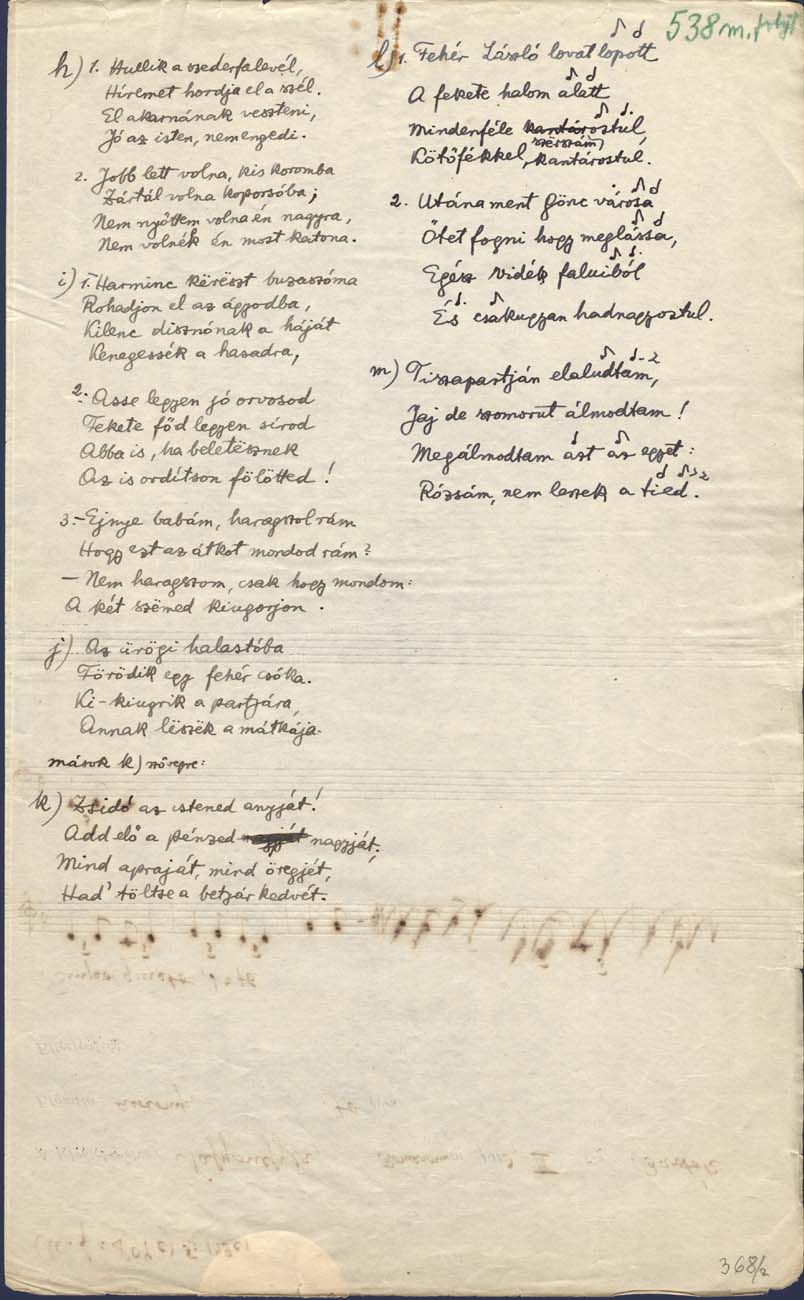 538 m. folyt.
h) 1. Hullik a szederfalevél,
Híremet hordja el a szél.
El akarnának veszteni,
Jó az isten, nem engedi.
2. Jobb lett volna, kis koromba
Zártál volna koporsóba;
Nem nyőttem volna én nagyra,
Nem volnék én most katona.
i) 1. Harminc kërëszt buzaszóma
Rohadjon el az ágyodba,
Kilenc disznónak a háját
Kenegessék a hasadra,
2. Asse legyen jó orvosod
Fekete főd legyen sírod
Abba is, ha beletësznek
Az is ordítson fölötted!
3. – Ejnye babám, haragszol rám
Hogy ezt az átkot mondod rám?
– Nem haragszom, csak hogy mondom:
A két szëmed kiugorjon.
j) Az ürögi halastóba
Förödik egy fehér csóka.
Ki-kiugrik a partjára,
Annak lëszëk a mátkája.
mások k) szövegre:
k) Zsidó az istened anyját!
Add elő a pénzed nagyját nagyját;
Mind apraját, mind öregjét,
Had' töltse a betyár kedvét.
l) 1. Fehér László lovat lopott
A fekete halom alatt
Mindenféle kantárostul,
szerszám
Kötőfékkel, kantárostul.
2. Utána ment Gönc városa
Őtet fogni hogy meglássa,
Egész vidék faluiból
És csakugyan hadnagyostul.
m) Tiszapartján elaludtam,
Jaj de szomorut álmodtam!
Megálmodtam azt az egyet:
Rózsám, nem leszek a tied.
368/2